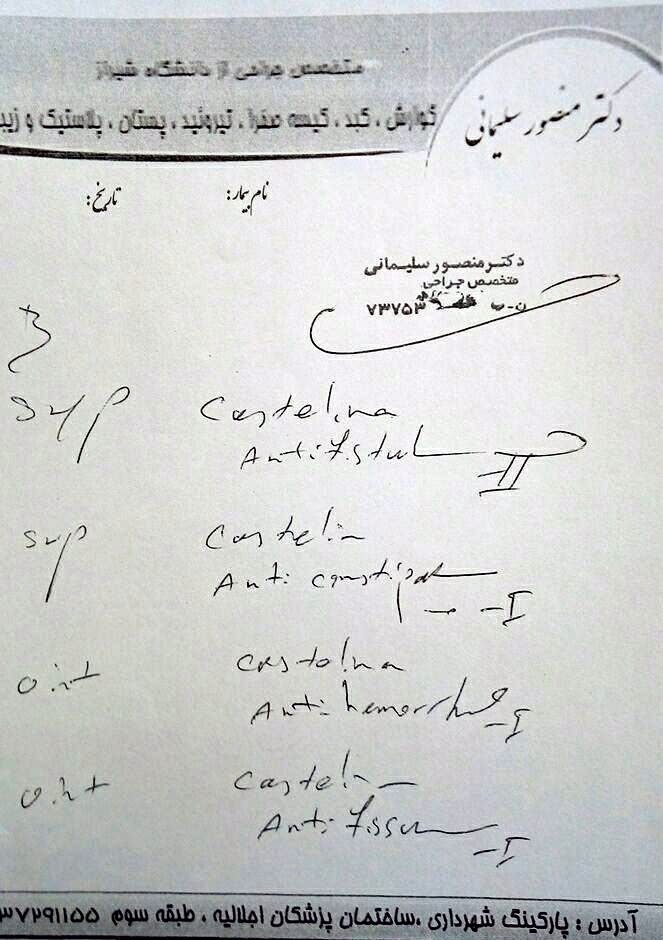 متخصص جراحی از دانشگاه شیراز
گوارش ، کبد ، کیسه صفرا ، تیروئید ، پستان ، پلاستیک و زیب
دکتر منصور سلیمانی
نام بیمار:
تاریخ:
دکتر منصور سلیمانی
متخصص جراحی
ن-پ ۷۳۷۵۳
sup Castelina
Antifistul II
sup Castelin
Anti constipat I
oint Castelina
Anti hemorrh I
oint Castelin
Anti fissu I
آدرس : پارکینگ شهرداری ،ساختمان پزشکان اجلالیه ، طبقه سوم ۳۷۲۹۱۱۵۵